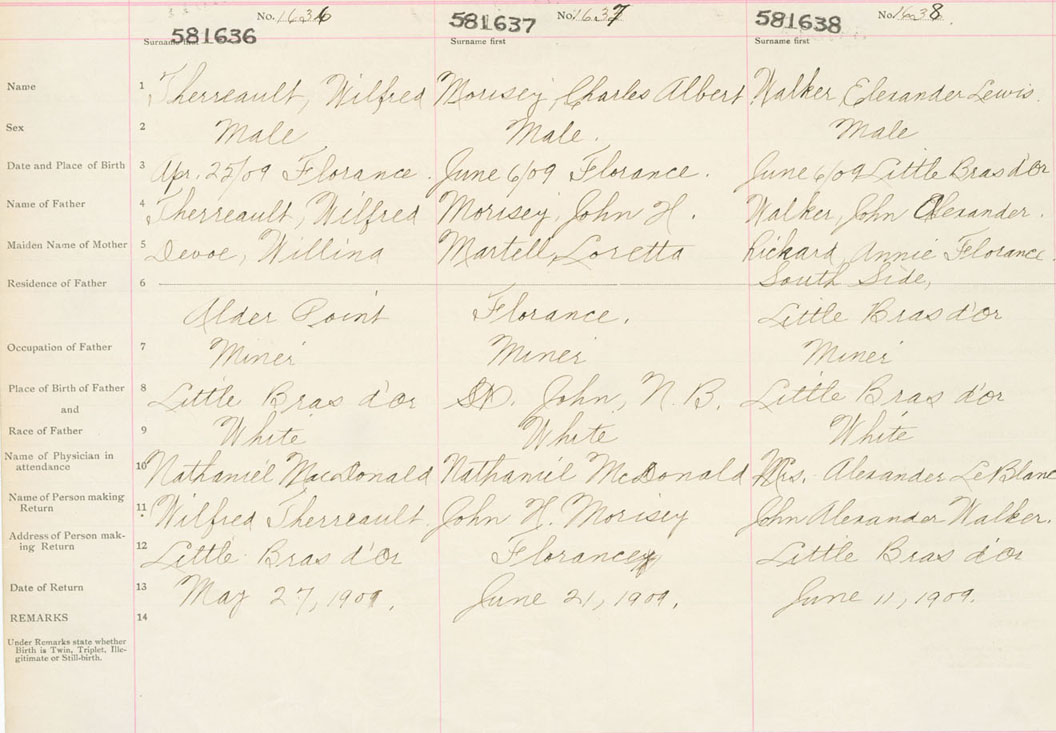 No. 1636 No. 1637 No. 1638
581636 581637 581638
Surname first Surname first Surname first
Name 1 Therreault, Wilfred Morisey, Charles Albert Walker Elexander Lewis.
Sex 2 Male Male. Male
Date and Place of Birth 3 Apr. 25/09 Florance. June 6/09 Florance. June 6/09 Little Bras d'or
Name of Father 4 Therreault, Wilfred Morisey, John H. Walker, John Alexander.
Maiden Name of Mother 5 Devoe, Willina Martell, Loretta Rickard, Annie Florance.
Residence of Father 6 South Side,
Alder Point Florance. Little Bras d'or
Occupation of Father 7 Miner Miner Miner
Place of Birth of Father 8 Little Bras d'or St. John, N.B. Little Bras d'or
and
Race of Father 9 White White White
Name of Physician in
attendance 10 Nathaniel MacDonald Nathaniel McDonald Mrs. Alexander LeBlanc
Name of Person making
Return 11 Wilfred Therreault. John H. Morisey John Alexander Walker.
Address of Person mak-
ing Return 12 Little Bras d'or Florance Little Bras d'or
Date of Return 13 May 27, 1909. June 21, 1909. June 11, 1909.
REMARKS 14
Under Remarks state whether
Birth is Twin, Triplet, Ille-
gitimate or Still-birth.